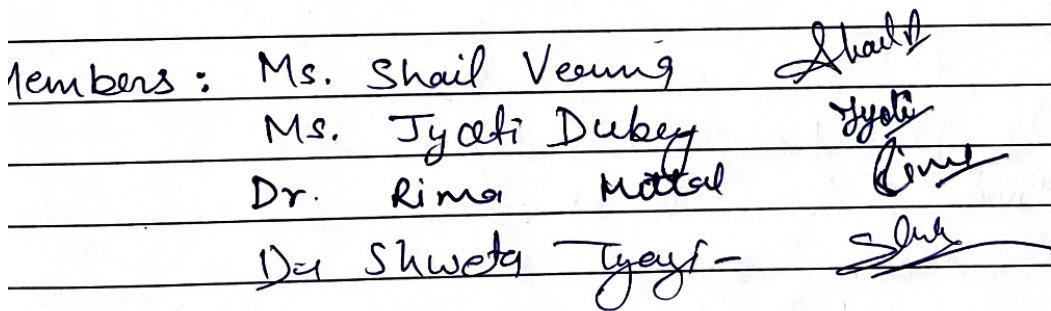 Members : Ms. Shail Verma Shail
Ms. Jyoti Dubey Jyoti
Dr. Rima Mittal Rima
Dr Shweta Tyagi -